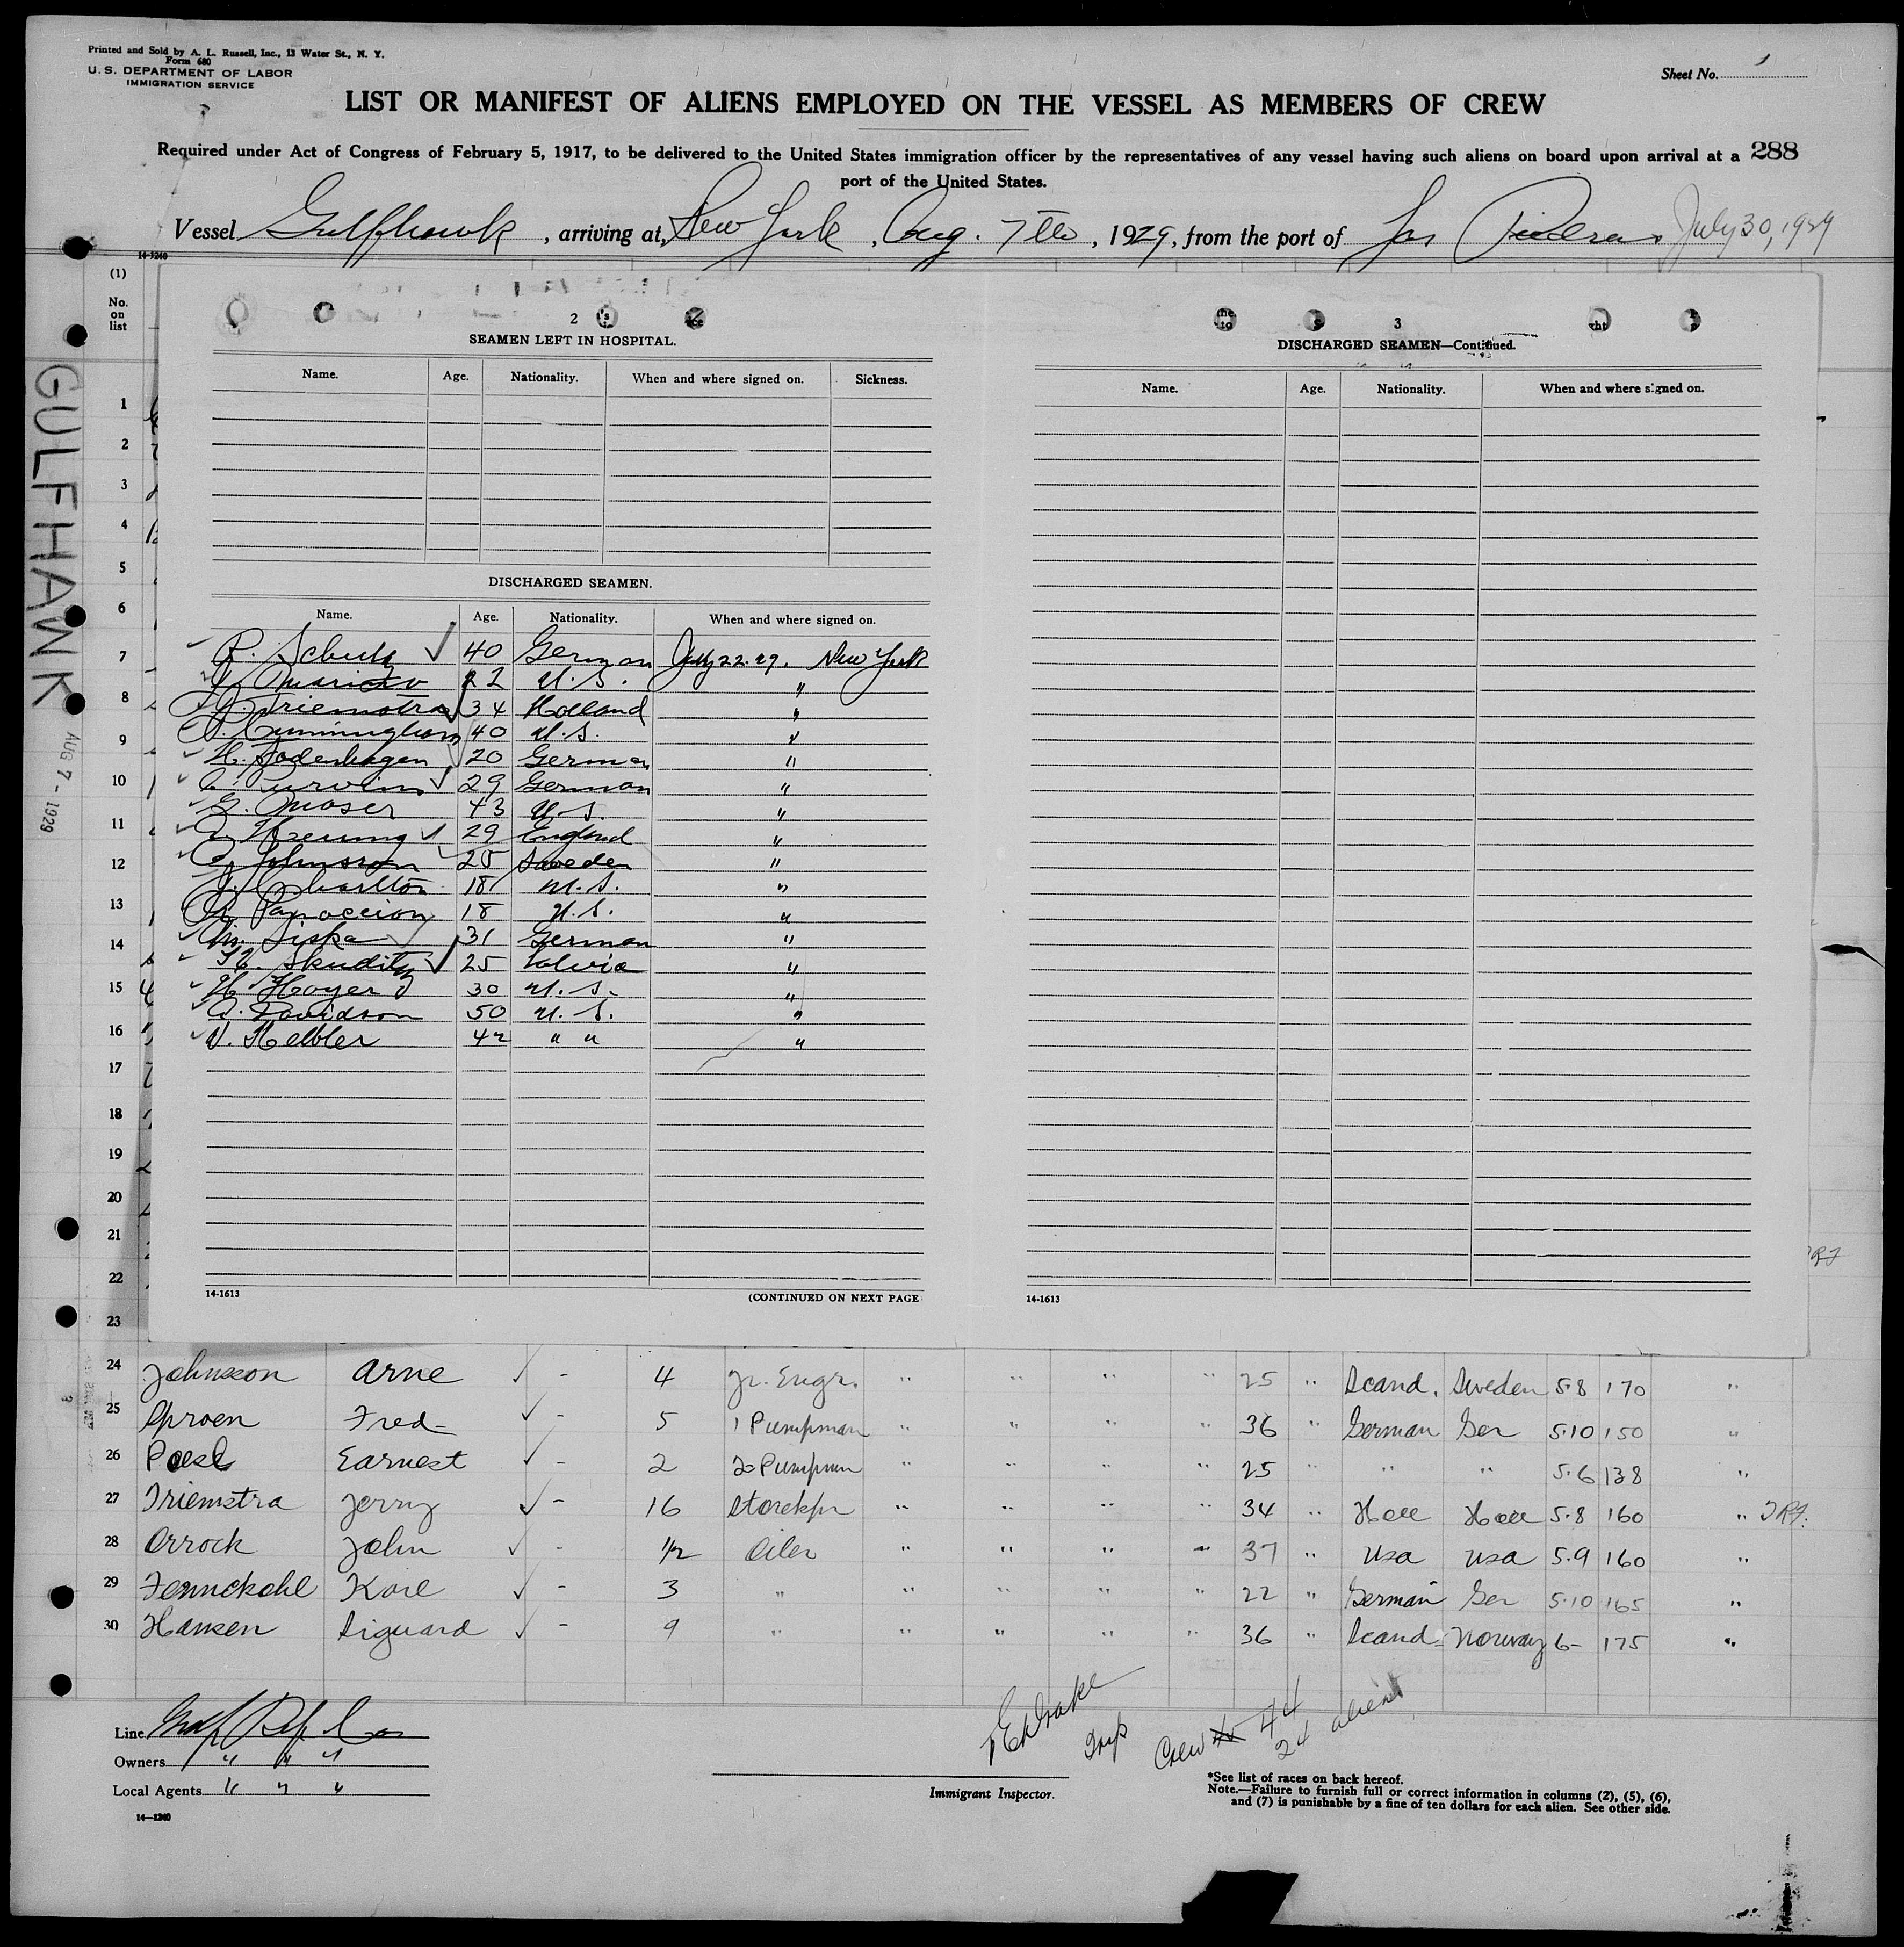 Printed and Sold by A. L. Russell, Inc., 13 Water St., N. Y.
Form 680
U. S. DEPARTMENT OF LABOR
IMMIGRATION SERVICE
Sheet No. 1
LIST OR MANIFEST OF ALIENS EMPLOYED ON THE VESSEL AS MEMBERS OF CREW
Required under Act of Congress of February 5, 1917, to be delivered to the United States immigration officer by the representatives of any vessel having such aliens on board upon arrival at a
port of the United States.
288
Vessel Gulfhawk, arriving at, New York, Aug. 7th, 1929, from the port of Las Piedras July 30, 1929
14-1240
(1)
No.
on
list
GULFHAWK
AUG 7 - 1929
2
SEAMEN LEFT IN HOSPITAL.
Name. Age. Nationality. When and where signed on. Sickness.
DISCHARGED SEAMEN.
Name. Age. Nationality. When and where signed on.
R. Schultz 40 German July 22. 29. New York
Marino 22 U. S. "
J. Triemstra 34 Holland "
Cunningham 40 U. S. "
H. Bodenhagen 20 German "
Purvins 29 German "
G. Moser 43 U. S. "
29 England "
A. Johnsson 25 Sweden "
J. Charlton 18 U. S. "
18 U. S. "
M. Siska 31 German "
K. Skudity 25 Latvia "
H. Hoyer 30 U. S. "
A. Davidson 50 U. S. "
V. Kebler 42 " " "
14-1613
(CONTINUED ON NEXT PAGE
3
DISCHARGED SEAMEN—Continued.
Name. Age. Nationality. When and where signed on.
14-1613
1
2
3
4
5
6
7
8
9
10
11
12
13
14
15
16
17
18
19
20
21
22
23
24 Johnsson Arne - 4 Jr. Engr. " " " " 25 " Scand. Sweden 5-8 170 "
25 Sproen Fred - 5 1 Pumpman " " " " 36 " German Ger 5-10 150 "
26 Poesl Earnest - 2 2 Pumpman " " " " 25 " " " 5-6 138 "
27 Triemstra Jerry - 16 Storekpr " " " " 34 " Holl Holl 5-8 160 "
28 Orrock John - 1/2 Oiler " " " " 37 " USA USA 5-9 160 "
29 Fennckohl Karl - 3 " " " " " 22 " German Ger 5-10 165 "
30 Hansen Siguard - 9 " " " " " 36 " Scand. Norway 6- 175 "
Line Gulf Ref. Co
Owners " " "
Local Agents " " "
14—1240
Drake
Insp
Crew 44
24 aliens
Immigrant Inspector.
*See list of races on back hereof.
Note.—Failure to furnish full or correct information in columns (2), (5), (6),
and (7) is punishable by a fine of ten dollars for each alien. See other side.